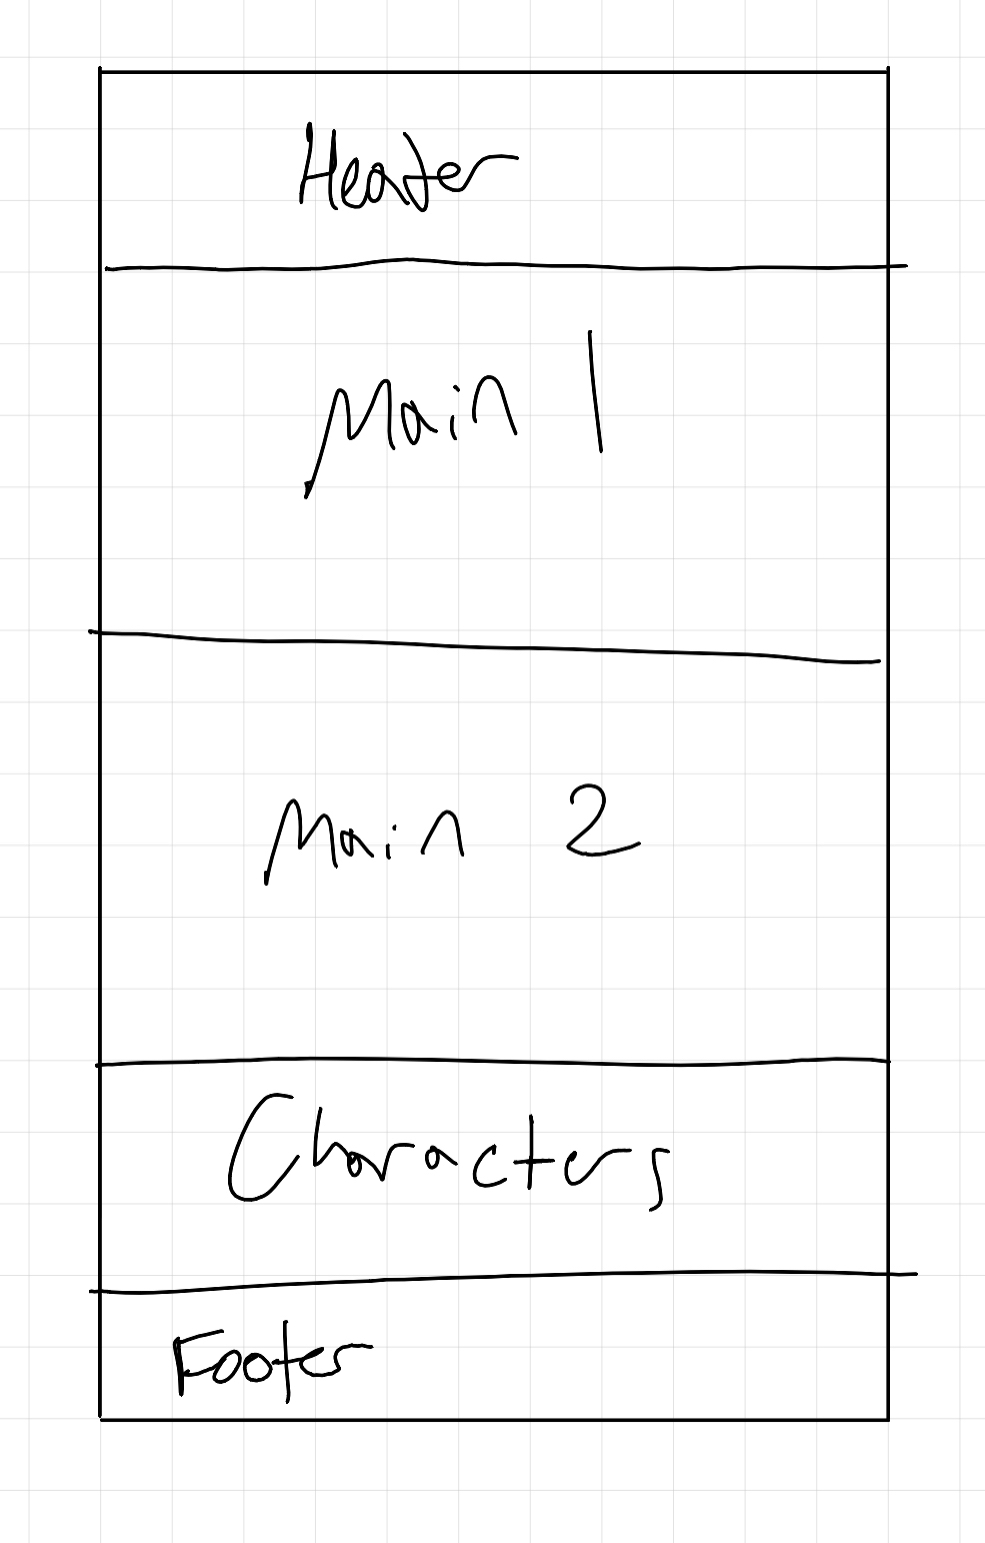 Header
Main 1
Main 2
Characters
Footer